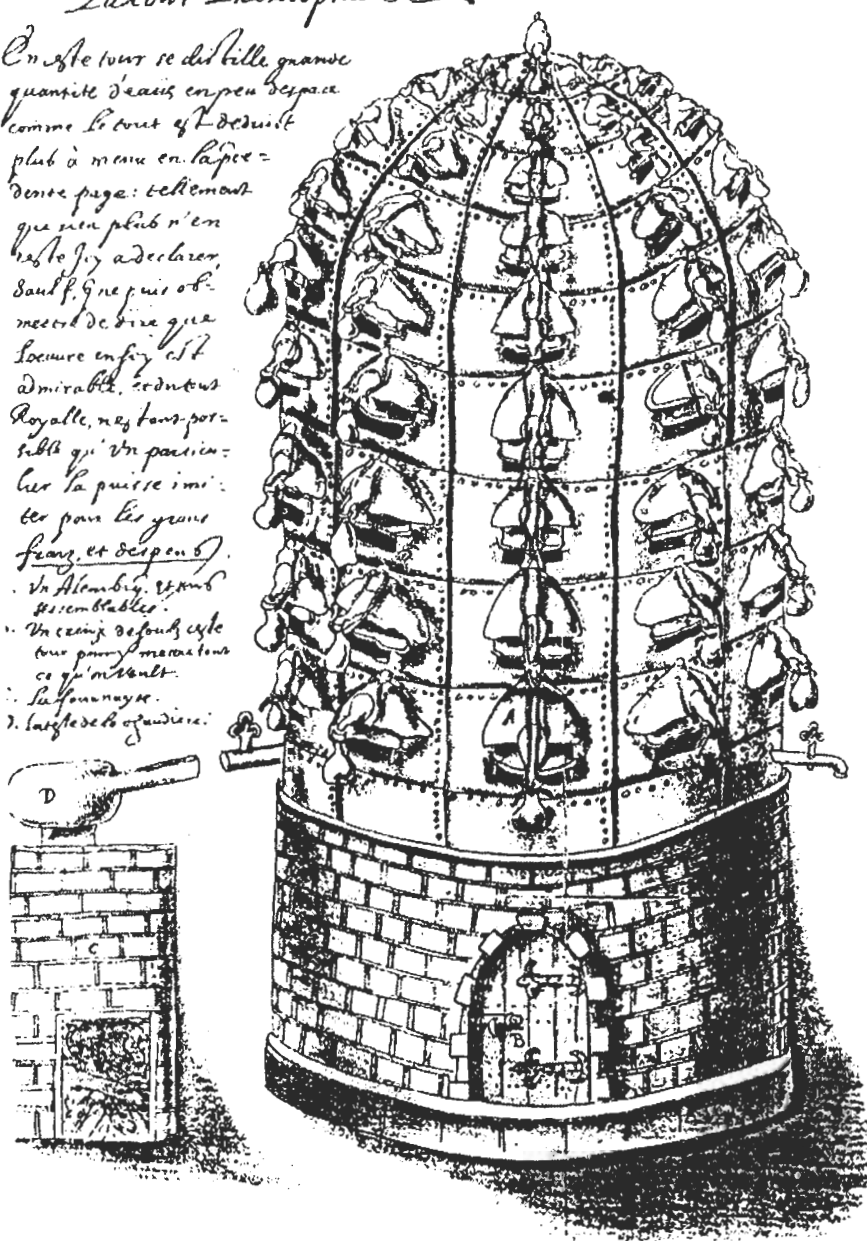 En ceste tour se distille grande
quantité d'eaues en peu despace
comme le tout est deduict
plus à menu en la pce=
dente page: tellement
que rien plus n'en
reste Icy a declarer,
Saulf, q ne puis ob=
mectre de dire que
Loeuure en soy est
admirable, et du tout
Royalle, nestant pos=
sible qu'Vn particu=
lier la puisse imi=
ter pour les grans
fraiz, et despens.
Vn Alembic, Et tous
ses semblables.
Vn creux desoubz ceste
tour pour y mectre tout
ce qu'on Veult.
La fournayse.
D. La teste de la chaudiere.
A
B
C
D